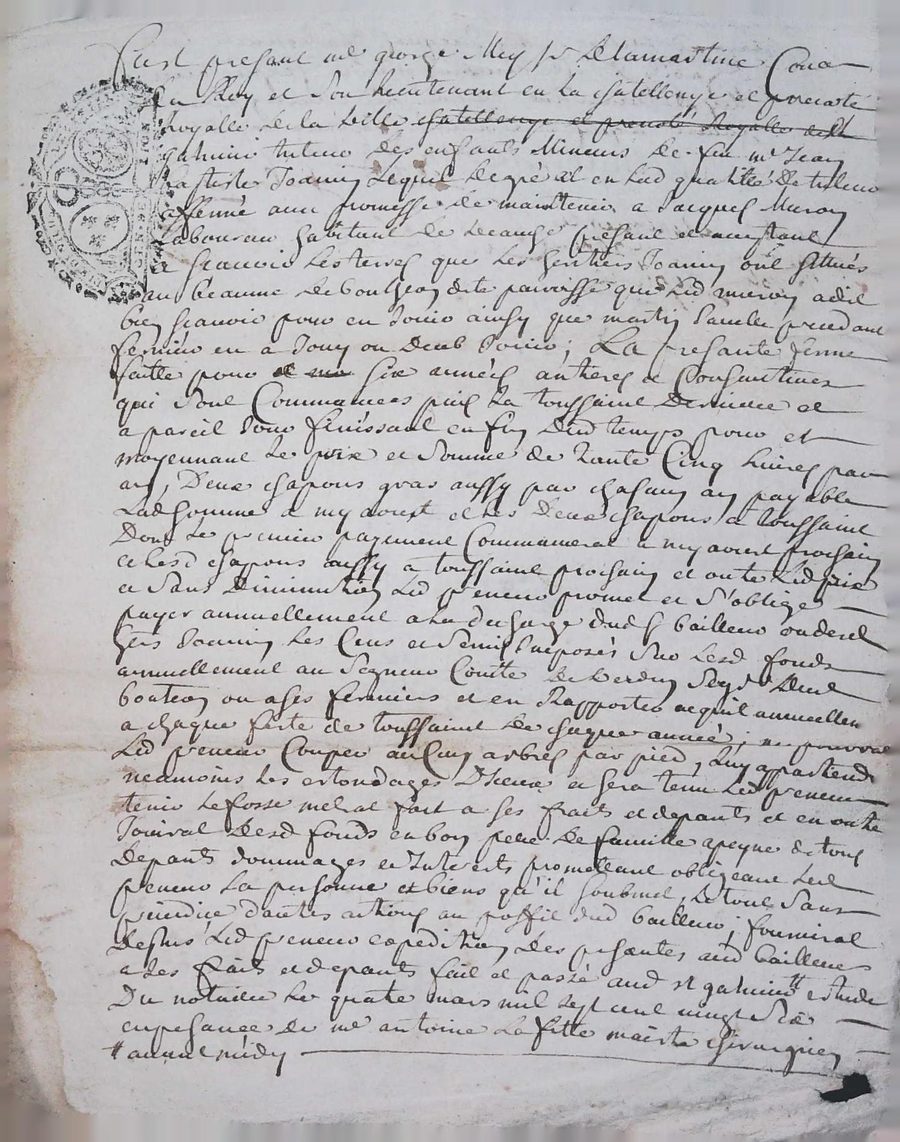 fust presant me george Mey sr Delamartine Coner
du Roy et son lieutenant en la chatellenye et prevosté
Royalle de la ville chatellenye et prevosté Royalle de St
galmier tuteur des enfants Mineurs de feu mr Jean
baptiste Joannin lequel de gré et en lad qualité de tuteur
affermé avec promesse de maintenir a Jacques Muron
laboureur habitant de presant et acceptant
scavoir les terres que les heritiers Joannin ont sittués
au de dite paroisse que led muron a dit
bien scavoir pour en Jouir ainsy que
fermier en a Jouy ou deub Jouir; La presante ferme
faitte pour et six années antieres et Consecutives
qui sont Commancées puis la toussaint derniere et
a pareil Jour finissant en fin dud temps pour et
moyennant le prix et somme de trante Cinq livres par
an, Deux chapons gras aussy par chascun an payable
Lad somme a my aoust et les Deux chapons a toussaint
Dont le premier payement Commancerat a my aoust prochain
et lesd chapons aussy a toussaint prochain et outre led prix
et sans Diminution led preneur promet et s'oblige
payer annuellement a la descharge dud sr bailleur ou desd
hers Joannin les Cens et servis imposés sur lesd fonds
annuellement au Segneur Comtte de
ou a ses fermiers et en Rapporter acquit annuellemt
a chaque feste de toussaint de chaque année; ne pourrat
led preneur Couper aulCung arbres par pied, luy appartiendra
neamoins les estondages et sera tenu led preneur
tenir le fosse fait a ses fraits et depants et en outre
Jouirat desd fonds en bon pere de famille apeyne de tous
depants dommages et Interests promettant obligeant led
preneur la personne et biens qu'il soubmet, le tout sans
prejudice d'autres actions au proffit dud bailleur; fournirat
led preneur expedition des presantes aud bailleur
a ses fraits et depants fait et passé aud st galmier # estude
Du notaire le quatre mars mil sept cent vingt six
en presance de me antoine La fitte maistre chirurgien
# avant midy